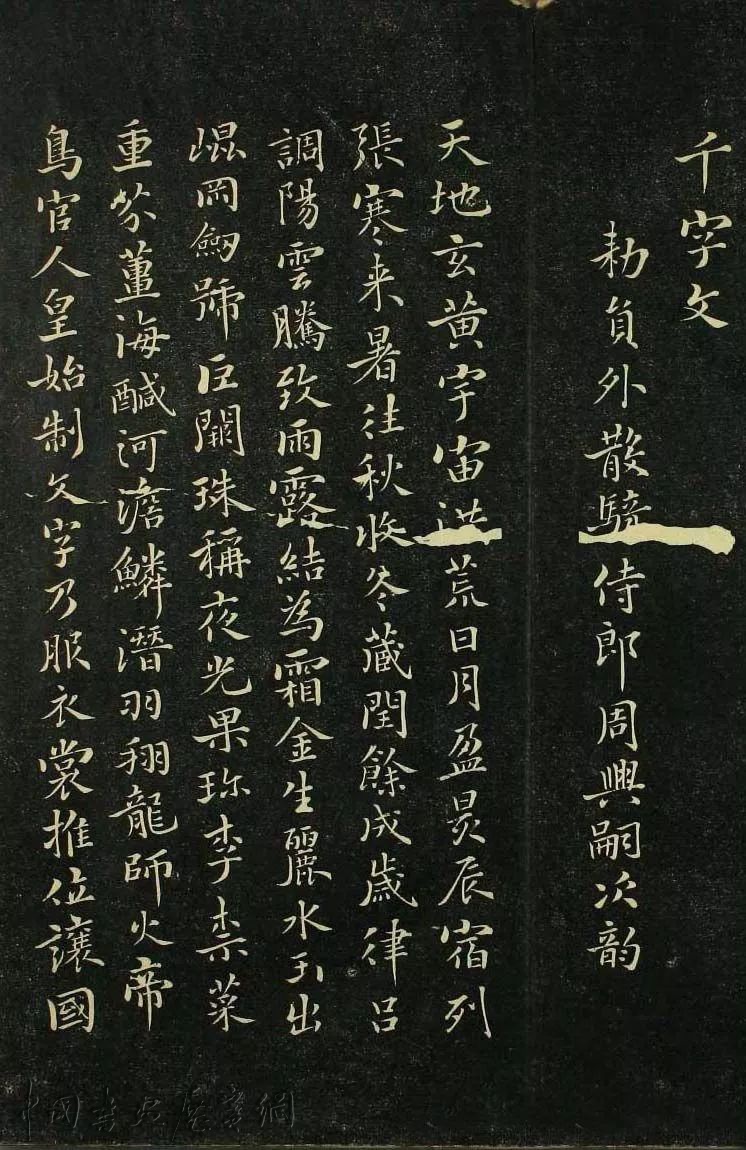 千字文
勑員外散騎侍郎周興嗣次韵
天地玄黄宇宙洪荒日月盈昃辰宿列
張寒来暑往秋收冬藏閏餘成歲律吕
調陽雲騰致雨露結為霜金生麗水玉出
崐岡劒號巨闕珠稱夜光果珎李柰菜
重芥薑海醎河澹鱗潛羽翔龍師火帝
鳥官人皇始制文字乃服衣裳推位讓國
中国书法展字網